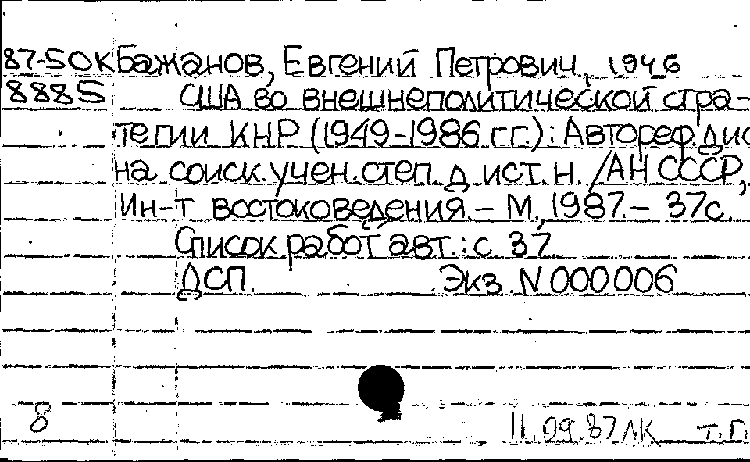 87-50К Бажанов, Евгений Петрович, 1946
8885 США во внешнеполитической стра-
тегии КНР (1949-1986 гг.): Автореф. дис
на соиск. учен. степ. д. ист. н. / АН СССР,
Ин-т востоковедения. - М., 1987. - 37с.
Список работ авт.: с. 37
ДСП. Экз. N 000006
8 11.09.87 ЛК т.П.